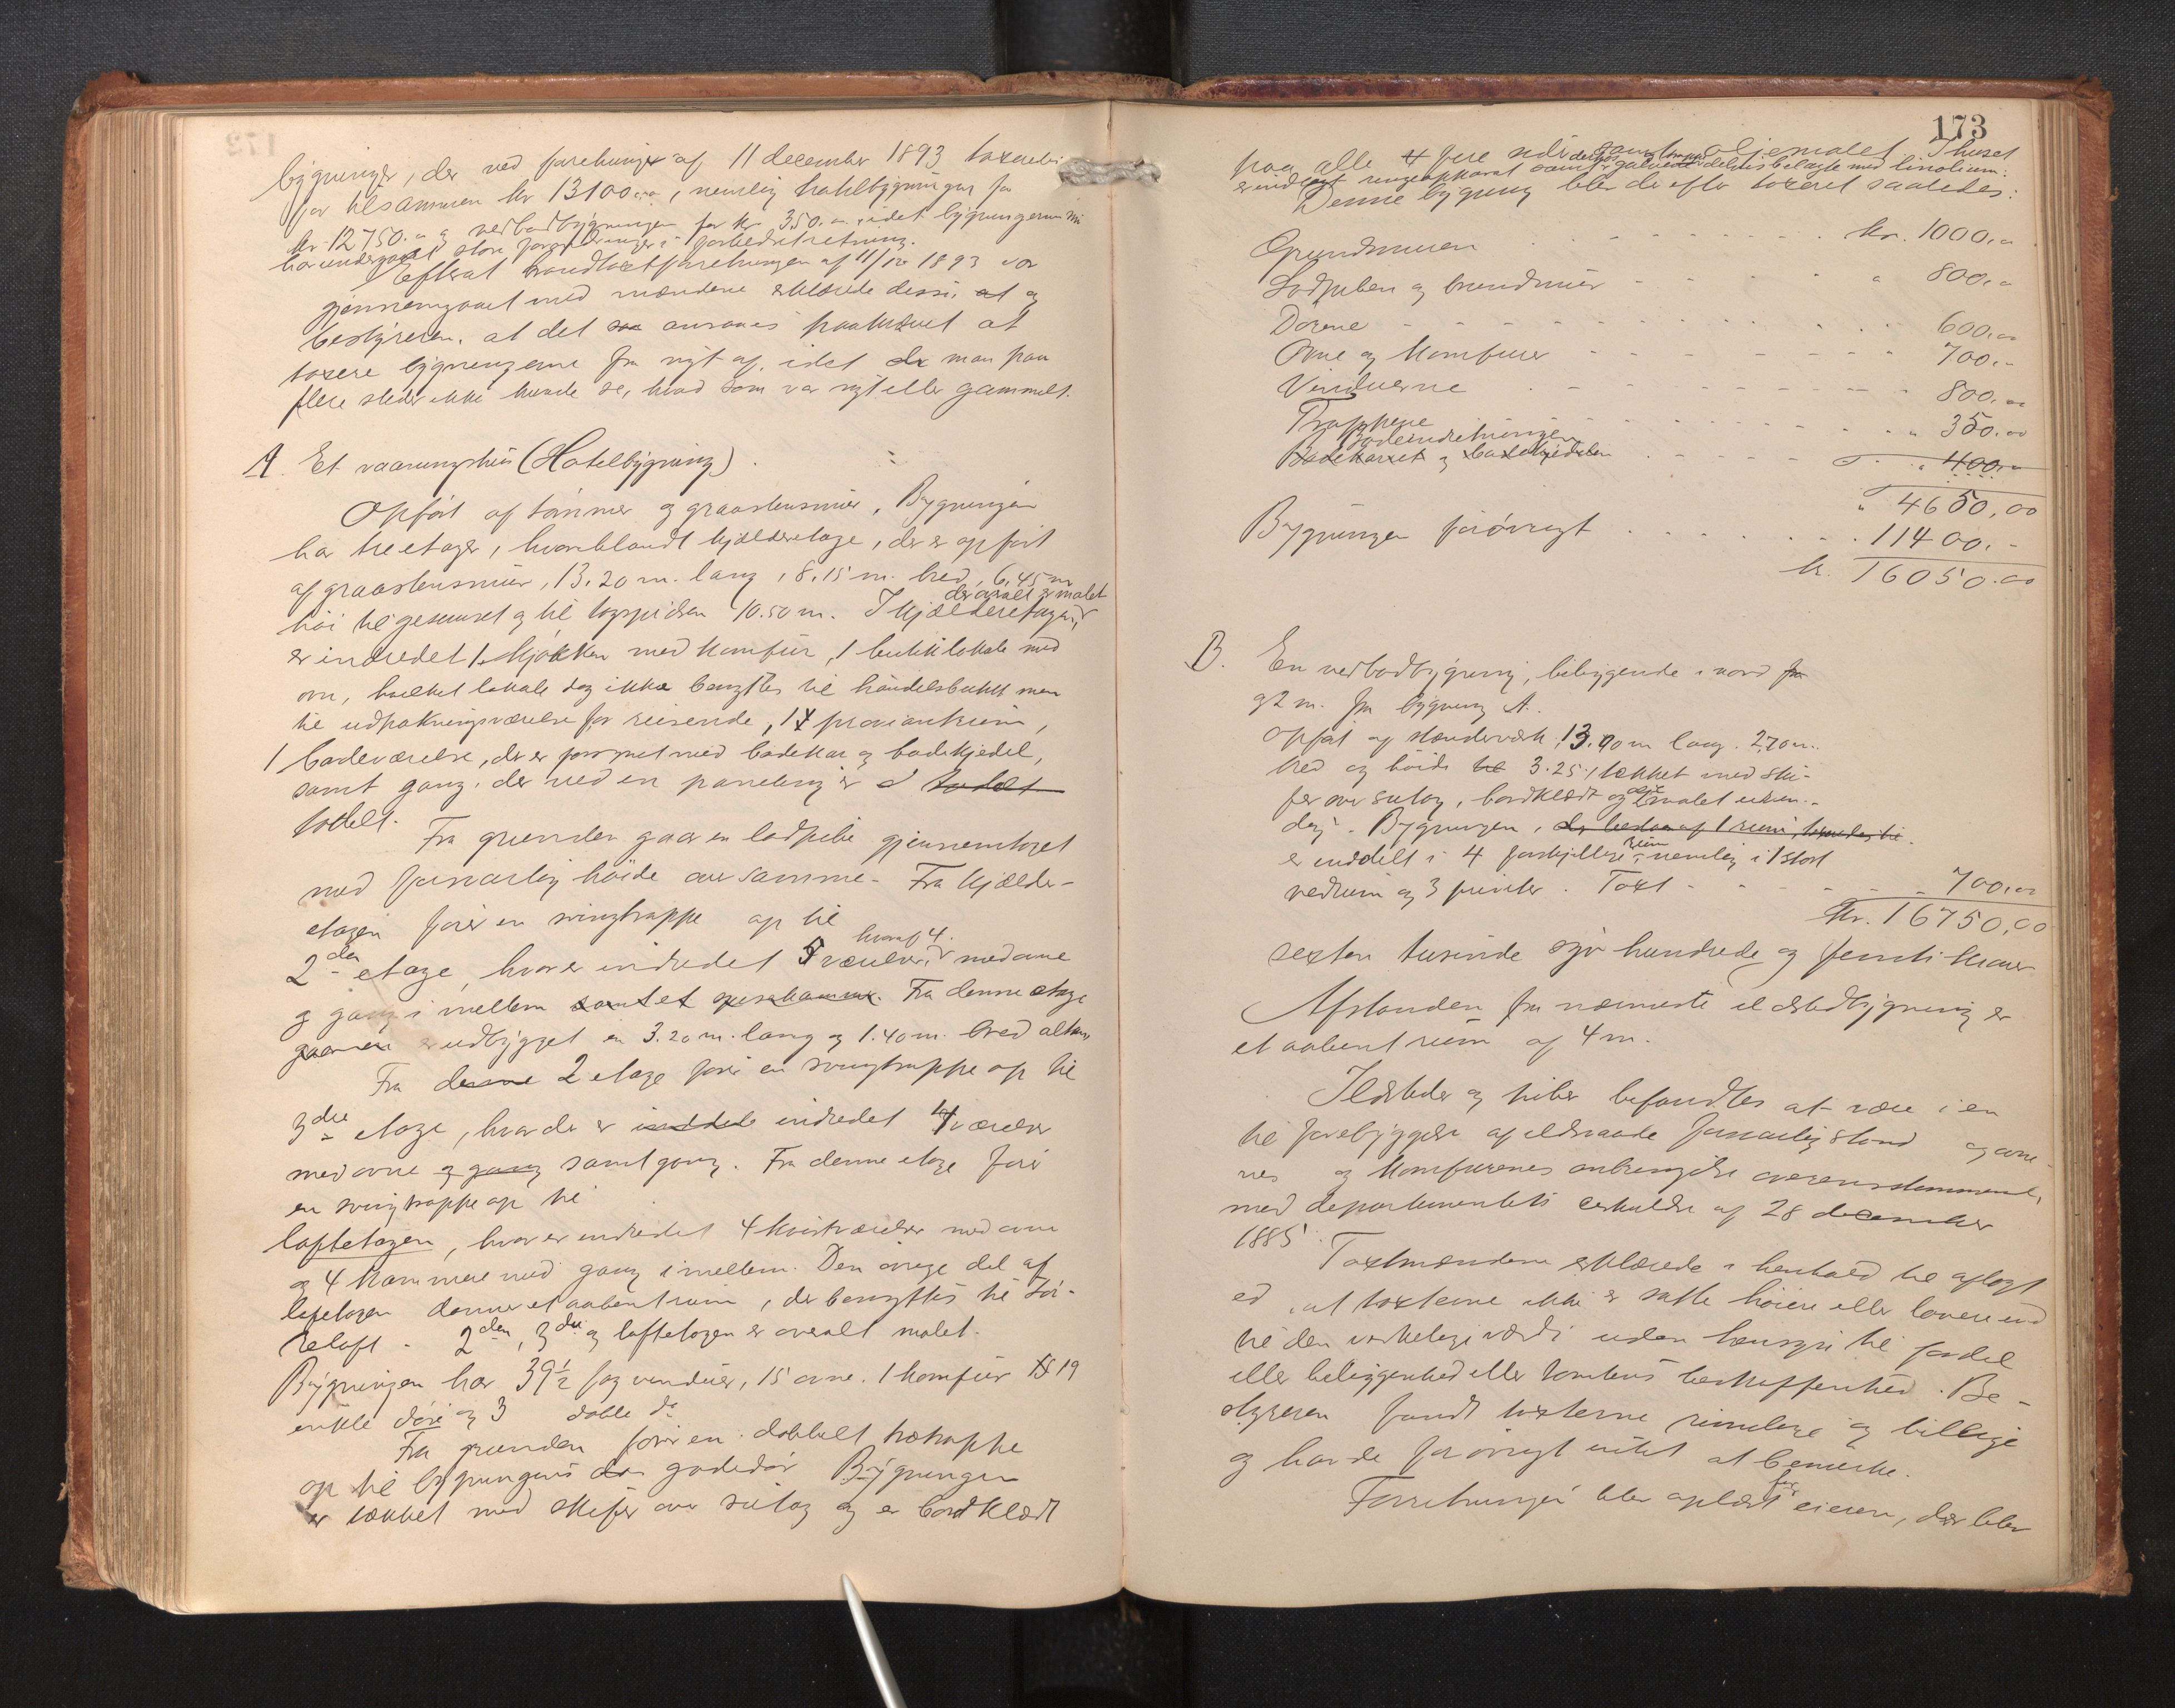 bygninger, der ved forretninger af 11 december 1893 taxeredes
for tilsammen kr 13100.00, nemlig hotelbygningen for
kr. 12750.00 og vedbodbygningen for kr 350.00, idet bygningerne nu
har undergaaet store forandringer i forbedret retning.
Efterat brandtaxtforretningen af 11/12 1893 var
gjennemgaaet med mændene erklærede disse, at og
bestyreren, at det saa ansaaes paakrævet at
taxere bygningerne fra nyt af, idet der man paa
flere steder ikke kunde se, hvad som var nyt eller gammelt.
A. Et vaaningshus (Hotelbygning)
Opført af tømmer og graastensmur, Bygningen
har tre etager, hvoriblandt kjælderetage, der er opført
af graastensmur, 13.20 m. lang, 8.15 m. bred, 6.45 m
der overalt er malet
høi til gesimset og til tagspidsen 10.50 m. I kjælderetagen,
er indredet 1 kjøkken med komfur, 1 butiklokale med
ovn, hvilket lokale dog ikke benyttes til handelsbutik men
til udpakningsværelse for reisende, 1 proviantrum,
1 badeværelse, der er forsynet med badekar og badekjedel,
samt gang, der ved en paneling er
todelt.
Fra grunden gaar en ladpibe gjennem taget
med forsvarlig høide over samme. Fra kjælder-
etagen fører en svingtrappe op til
hvoraf 4
2den etage, hvor er indredet 5 værelser, med ovne
og gang i mellem samt et spisekammer. Fra denne etage
er udbygget en 3.20 m. lang og 1.40 m. bred altan
Fra denne 2 etage fører en svingtrappe op til
3die etage, hvor der er inddelt indredet 4 værelser
med ovne og gang samt gang. Fra denne etage fører
en svingtrappe op til
loftetagen, hvor er indredet 4 kvistværelser med ovne
og 4 kammere med gang imellem. Den øvrige del af
loftetagen danner et aabent rum, der benyttes til tør-
reloft. 2den, 3die og loftetagen er overalt malet.
Bygningen har 39½ fag vinduer, 15 ovne, 1 komfur 19
enkle døre og 3 doble do
Fra grunden fører en dobbelt trætrappe
op til bygningens gadedør Bygningen
er tækket med skifer over sutag og er bordklædt
173
paa alle 4 fire sider samt oljemalet. I huset
er indlagt ringeapparat samt gulvene deltvis belagte med linolium.
Denne bygning blev derefter taxeret saaledes:
Grundmuren kr. 1000.00
Ladpiben og brandmur " 800.00
Dørene 600.00
Ovne og komfurer 700.-
Vinduerne 800.00
Trapperne " 350.00
Badeindretningen
Badekarret og badekjedelen " 400.00
" 4650.00
Bygningen forøvrigt 11400.-
kr. 16050.00
B. En vedbodbygning, beliggende i nord fra
og 2 m. fra bygning A.
Opført af stænderværk, 13.90 m lang. 2.70 m.
bred og høide til 3.25, tækket med ski-
fer over sutag, bordklædt og oljemalet uden-
dørs. Bygningen, der bestaar af 1 rum,
er inddelt i 4 forskjellige rum, nemlig i 1 stort
vedrum og 3 priveter. Taxt 700.00
Kr. 16750.00
sexten tusinde syv hundrede og femti kroner
Afstanden fra nærmeste ildstedbygning er
et aabent rum af 4 m.
Ildsteder og piber befandtes at være i en
til forebyggelse af ildsvaade forsvarlig stand og ovne-
nes og komfurenes anbringelse overensstemmende
med departementets cirkulære af 28 december
1885.
Taxtmændene erklærede i henhold til aflagt
ed, at taxterne ikke er satte høiere eller lavere end
til den virkelige værdi uden hensyn til fordel
eller beliggenhed eller tomtens beskaffenhed. Be-
styreren fandt taxterne rimelige og billige
og havde forøvrigt intet at bemærke.
Forretningen blev oplæst for eieren, der blev